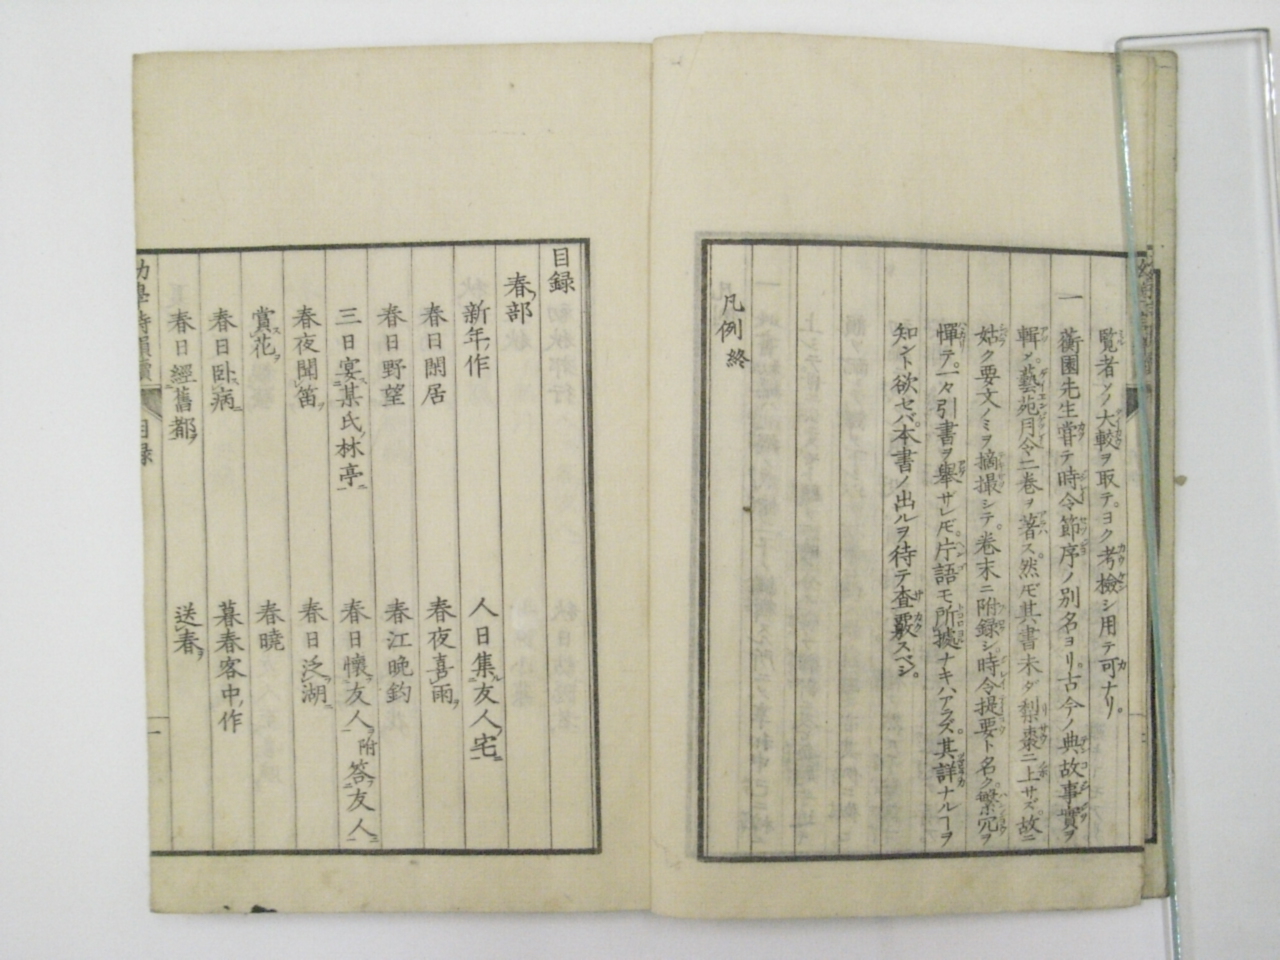 覧者ソノ大較ヲ取テヨク考檢シ用テ可ナリ。
一 蘅園先生嘗テ時令節序ノ別名ヨリ。古今ノ典故事實ヲ
輯メ。藝苑月令二巻ヲ著ス。然𪜈其書未ダ梨棗ニ上サズ。故ニ
姑ク要文ノミヲ摘撮シテ。巻末ニ附録シ。時令提要ト名ク。繁冗ヲ
憚テ。一々引書ヲ擧サレ𪜈。片語モ所據ナキハアラズ。其詳ナルヿヲ
知ント欲セバ。本書ノ出ルヲ待テ査覈スベシ。
凡例終
目録
春部
新年ノ作
人日集友人ノ宅ニ
春日閑居
春夜喜雨ヲ
春日野望
春江晩釣
三日宴ス某氏ノ林亭ニ
春日懐フ友人ヲ 附答フ友人ニ
春夜聞笛ヲ
春日泛湖ニ
賞ス花ヲ
春曉
春日臥ス病ニ
暮春客中ノ作
春日經舊都ヲ
送春ヲ
幼學詩韻續 目録 一